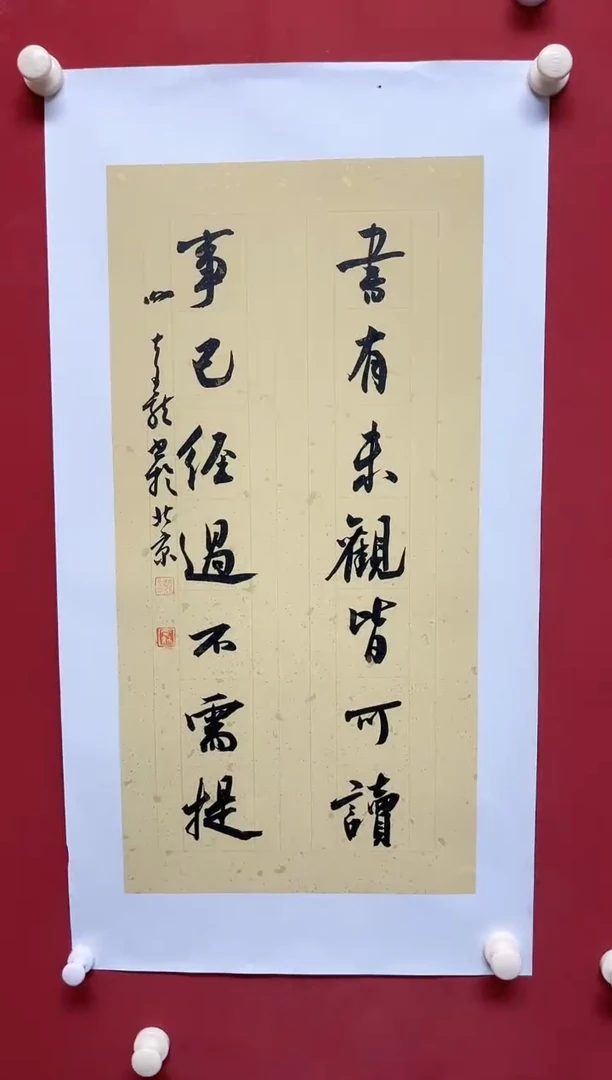 書有未觀皆可讀
事已經過不需提
書於北京